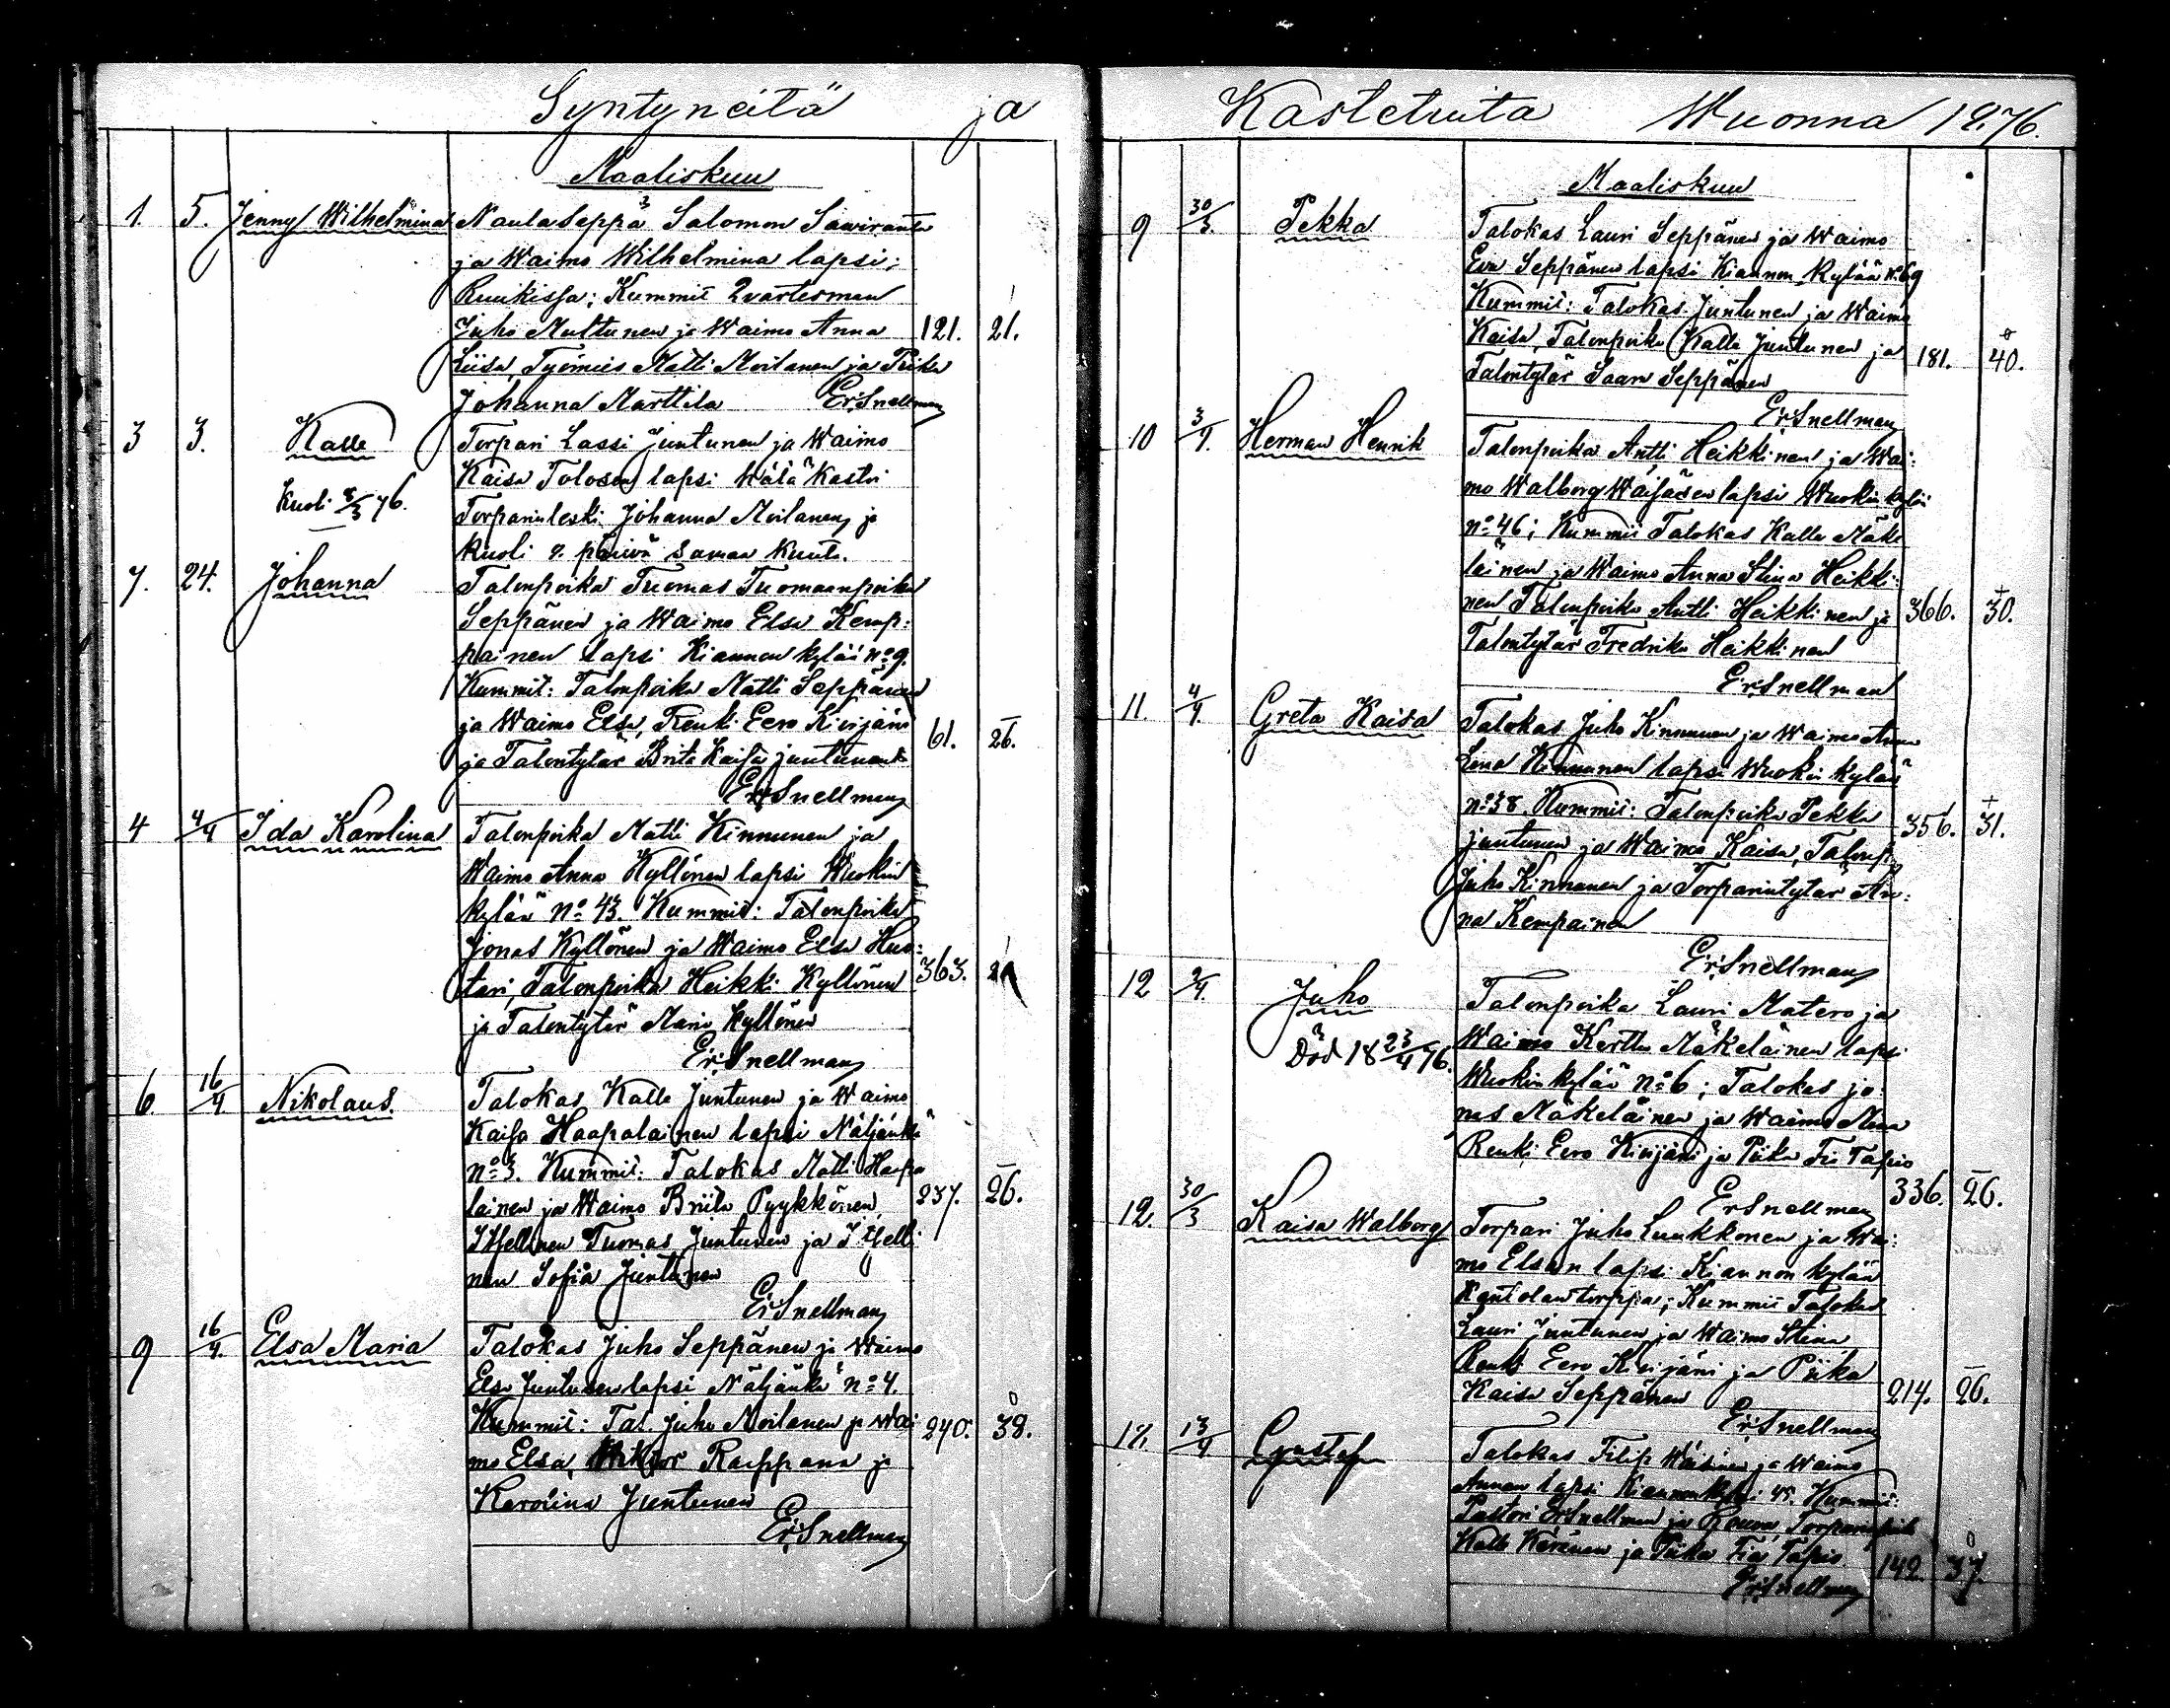 Syntyneitä ja
Maaliskuu
1 5. Jenny Wilhelmina Naulaseppä Salomon Sawiranta
ja Waimo Wilhelmina lapsi;
Ruukissa; Kummit Qvartesman
Juho Multunen ja Waimo Anna 121. 21.
Liisa, Työmies Matti Moilanen ja Piika
Johanna Marttila Er. Snellman
3 3. Kalle Torpari Lassi Juntunen ja Waimo
Kaisa Tolosen lapsi Wälä Kastoi
Kuoli 8/3 76. Torparinleski Johanna Moilanen, ja
kuoli 8. päivä saman kuuta.
7. 24. Johanna Talonpoika Tuomas Tuomaanpoika
Seppänen ja Waimo Elsa Kemp:
painen lapsi Kiannon kylää No 9.
Kummit: Talonpoika Matti Seppänen
ja Waimo Elsa, Renki Eero Kinjäni 61. 26.
ja Talontytär Brita Kaisa Juntunen
Er. Snellman
4 4/4 Ida Karolina Talonpoika Matti Kinnunen ja
Waimo Anna Kyllönen lapsi Wuokin
kylää No 43. Kummit: Talonpoika
Jonas Kyllönen ja Waimo Elsa Huo:
tari, Talonpoika Heikki Kyllönen 363.
ja Talontytär Maria Kyllönen
Er. Snellman
6. 16/4. Nikolaus. Talokas Kalle Juntunen ja Waimo
Kaisa Haapalainen lapsi Näljänkä
No 3. Kummit: Talokas Matti Haapa
lainen ja Waimo Briita Pyykkönen, 237. 26.
Itsellinen Tuomas Juntunen ja Itselli
nen Sofia Juntunen
Er. Snellman
9 16/4. Elsa Maria Talokas Juho Seppänen ja Waimo
Elsa Juntusen lapsi Näljänkä No 4.
Kummit: Tal. Juho Moilanen ja Wai 240. 38.
mo Elsa, Wiktor Raappana ja
Karolina Juntunen
Er. Snellman
Kastetuita Wuonna 1876.
Maaliskuu
9 30/3. Pekka Talokas Lauri Seppänen ja Waimo
Eva Seppänen lapsi Kiannon kylää No 69
Kummit: Talokas Juntunen ja Waimo
Kaisa, Talonpoika Kalle Juntunen ja 181. 40.
Talontytär Saara Seppänen
Er. Snellman
10 3/4. Herman Henrik Talonpoika Antti Heikkinen ja Wai:
mo Walborg Wäisäsen lapsi Wuokin kylä
No 46; Kummit Talokas Kalle Mäke
läinen ja Waimo Anna Stina Heikki:
nen Talonpoika Antti Heikkinen ja 366. 30.
Talontytär Fredrika Heikkinen
Er. Snellman
11. 4/4. Greta Kaisa Talokas Juho Kinnunen ja Waimo Anna
Lena Kinnunen lapsi Wuokin kylää
No 38. Kummit: Talonpoika Pekka 356. 31.
Juntunen ja Waimo Kaisa, Talonp.
Juho Kinnunen ja Torparintytär An:
na Kempainen
Er. Snellman
12 2/4. Juho Talonpoika Lauri Matero ja
Död 18 23/4 76. Waimo Kerttu Mäkeläinen lapsi
Wuokin kylää No 6; Talokas Jo:
nas Mäkeläinen ja Waimo
Renki Eero Kinjäni ja Piika Fia Tapio
Er. Snellman 336. 26.
12. 30/3 Kaisa Walborg Torpari Juho Luukkonen ja Wai:
mo Elsan lapsi Kiannon kylää
Kantolan torppa; Kummit Talokas
Lauri Juntunen ja Waimo Stina
Renki Eero Kinjäni ja Piika
Kaisa Seppänen 214. 26.
Er. Snellman
18. 13/4 Gustaf Talokas Filip Wäisänen ja Waimo
Annan lapsi Kiannonkylä 45. Kummit:
Pastori Er. Snellman ja Rouva, Torparinpoika
Kalle Keränen ja Piika Fia Tapio. 142. 37.
Er. Snellman